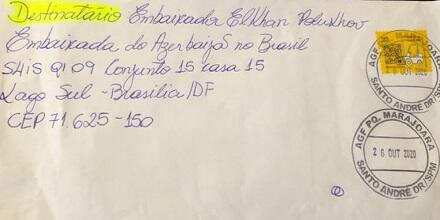 Destinatário Embaixador Elkhan Polukhov
Embaixada do Azerbaijão no Brasil
SHIS QI 09 Conjunto 15 casa 15
Lago Sul - Brasília/DF
CEP 71.625-150
AGF PQ. MARAJOARA
26 OUT 2020
SANTO ANDRE DR/SPM
AGF PQ. MARAJOARA
26 OUT 2020
SANTO ANDRE DR/SPM